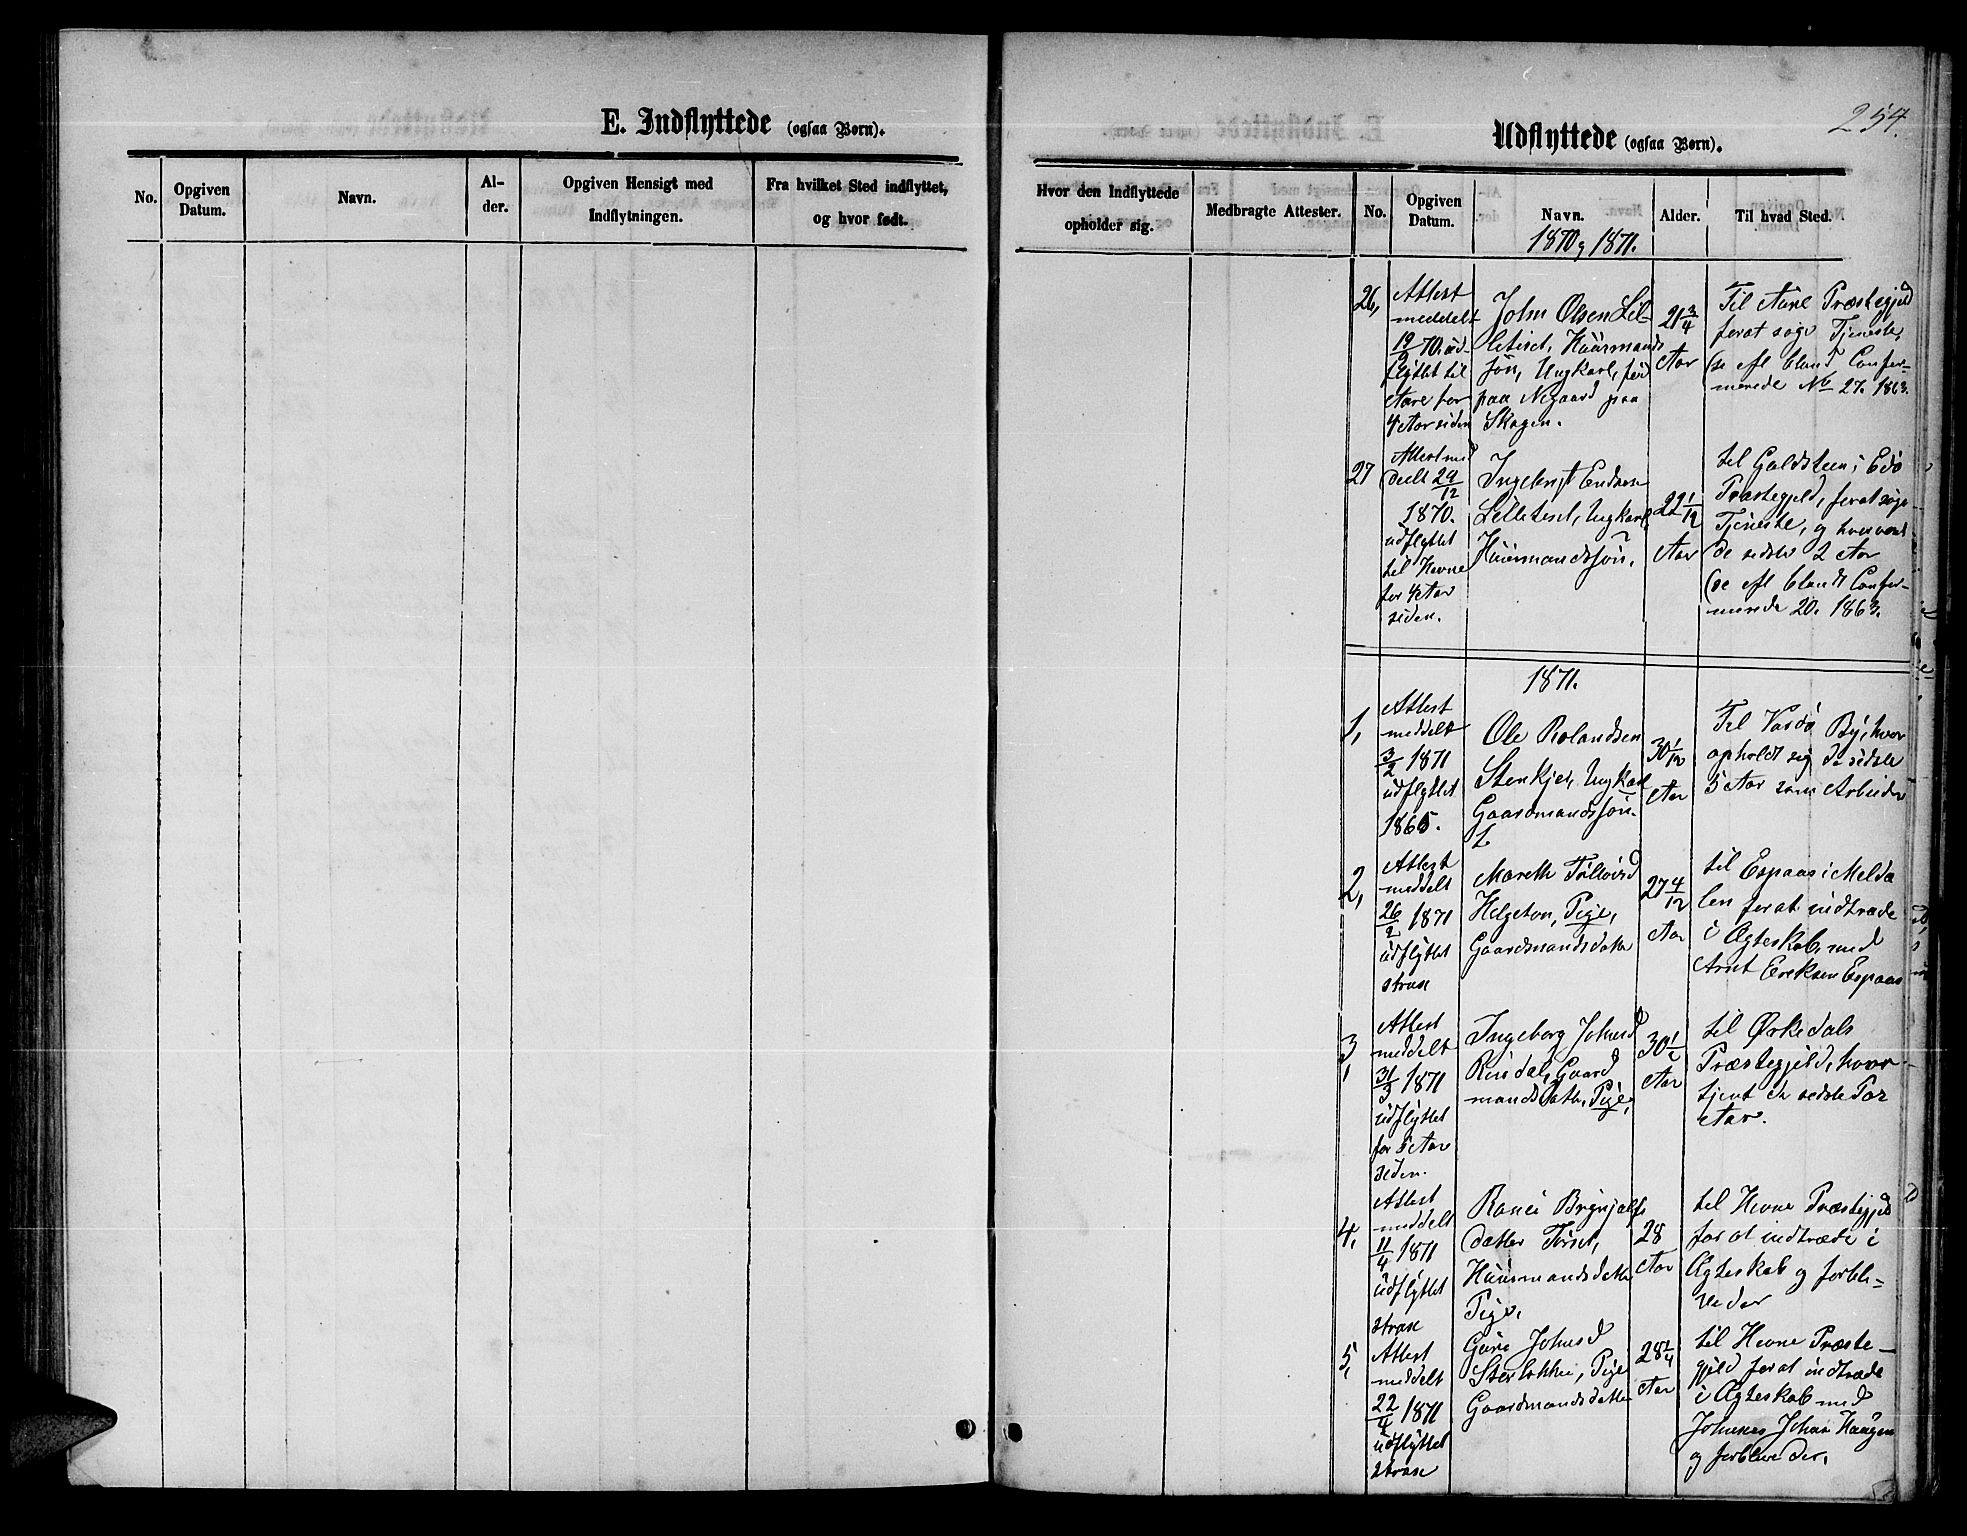 E. Indflyttede (ogsaa Børn).
No.
Opgiven
Datum.
Navn.
Al-
der.
Opgiven Hensigt med
Indflytningen.
Fra hvilket Sted indflyttet,
og hvor født.
254.
Udflyttede (ogsaa Børn).
Hvor den Indflyttede
opholder sig.
Medbragte Attester.
No.
Opgiven
Datum.
Navn.
Alder.
Til hvad Sted.
1870 og 1871.
26,
Attest
meddelt
19/9 70. ud-
flyttet til
Aure for
4 Aar siden
John Olsen Lil-
letiset, Huusmands
søn, Ungkarl, fød
paa Negaard paa
Skogen.
21 3/4
Aar
Til Aure Præstegjeld
for at søge Tjeneste,
(se efl bland Confir-
merede No 27. 1863.
27
Attest med
deelt 29/12
1870.
udflyttet
til Hevne
for 4 Aar
siden.
Ingebrigt Endresen
Lilletiset, Ungkarl,
Huusmandssøn,
22 1/12
Aar
til Guldsteen i Edø
Præstegjeld, for at søge
Tjeneste, og hvor været
de sidste 2 Aar
(se efl blandt Confir-
merede 20. 1863.
1871.
1,
Attest
meddelt
3/2 1871
udflyttet
1865.
Ole Rolandsen
Stenkjer, Ungkarl
Gaardmandssøn.
30 1/12
Aar
Til Vardø By, hvor
opholdt sig de sidste
5 Aar som Arbeider
2,
Attest
meddelt
26/2 1871
udflyttet
strax
Mareth Tollevsd
Helgeton, Pige,
Gaardsmandsdatter
27 4/12
Aar
til Espaas i Melda
len for at indtræde
i Ægteskab med
Arnt Eriksen Espaas
3,
Attest
meddelt
31/3 1871
udflyttet
for 5 Aar
siden.
Ingeborg Johnsd
Rindal, Gaard
mandsdatter, Pige,
30 1/2
Aar
til Ørkedals
Præstegjeld, hvor
tjent de sidste Par
Aar.
4,
Attest
meddelt
11/4 1871
udflyttet
strax
Ranei Brynjulfs
datter Tørset,
Huusmandsdatter
Pige,
28
Aar
til Hevne Præstegjeld
for at indtræde i
Ægteskab og forbli-
ve der
5,
Attest
meddelt
22/4 1871
udflyttet
strax
Guri Johnsd
Storløkken, Pige
Gaardmandsdatter
28 1/4
Aar
til Hevne Præste-
gjeld for at indtræde
i Ægteskab med
Johannes Johnsen Haugen
og forblive der.